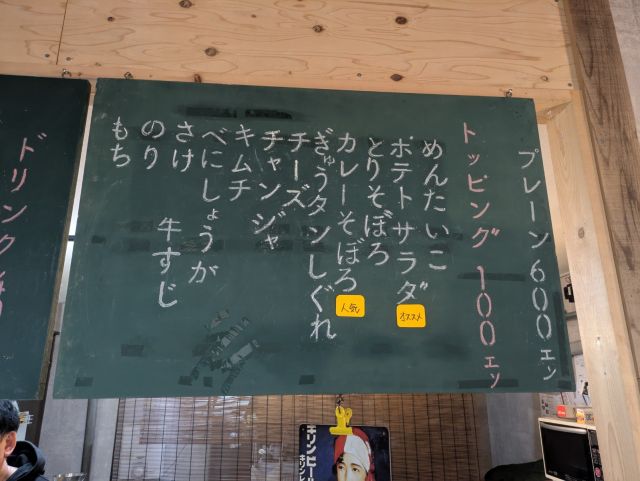 プレーン 600エン
トッピング 100エン
めんたいこ
ポテトサラダ
オススメ
とりそぼろ
カレーそぼろ
人気
ぎゅうタンしぐれ
チーズ
チャンジャ
キムチ
べにしょうが
さけ 牛すじ
のり
もち
ドリンク
キリンビール
キリンレ